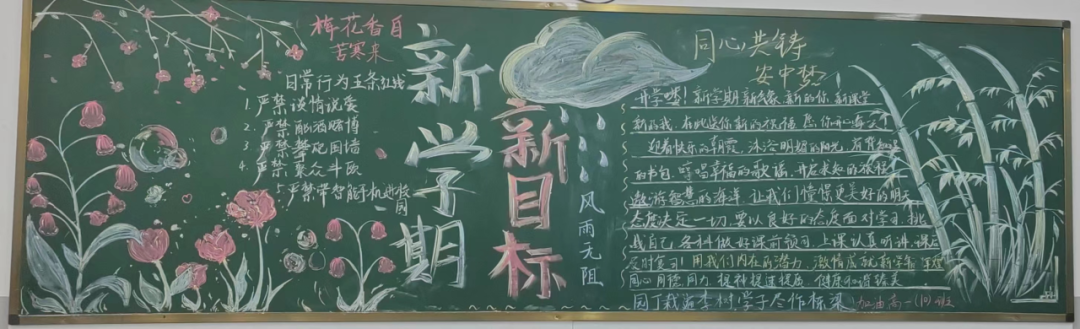 梅花香自
苦寒来
日常行为五条红线
1. 严禁谈情说爱
2. 严禁酗酒赌博
3. 严禁攀爬围墙
4. 严禁聚众斗殴
5. 严禁带智能手机进校园
新学期
新目标
风雨无阻
同心共铸
安中梦
开学嘿！新学期新气象 新的你 新课堂
新的我 在此送你新的祝福 愿你开心每一天
迎着快乐的朝霞 沐浴明媚的阳光 背着
的书包 哼唱幸福的歌谣 开启求知的旅程
遨游智慧的海洋 让我们憧憬更美好的明天
态度决定一切 要以良好的态度面对学习 挑
战自己 各科做好课前预习 上课认真听讲 课后
及时复习！用我们内在的潜力 激情成就新学年
同心同德 同力 提神提速提质
园丁栽培李树 学子念作栋梁
加油高一 班